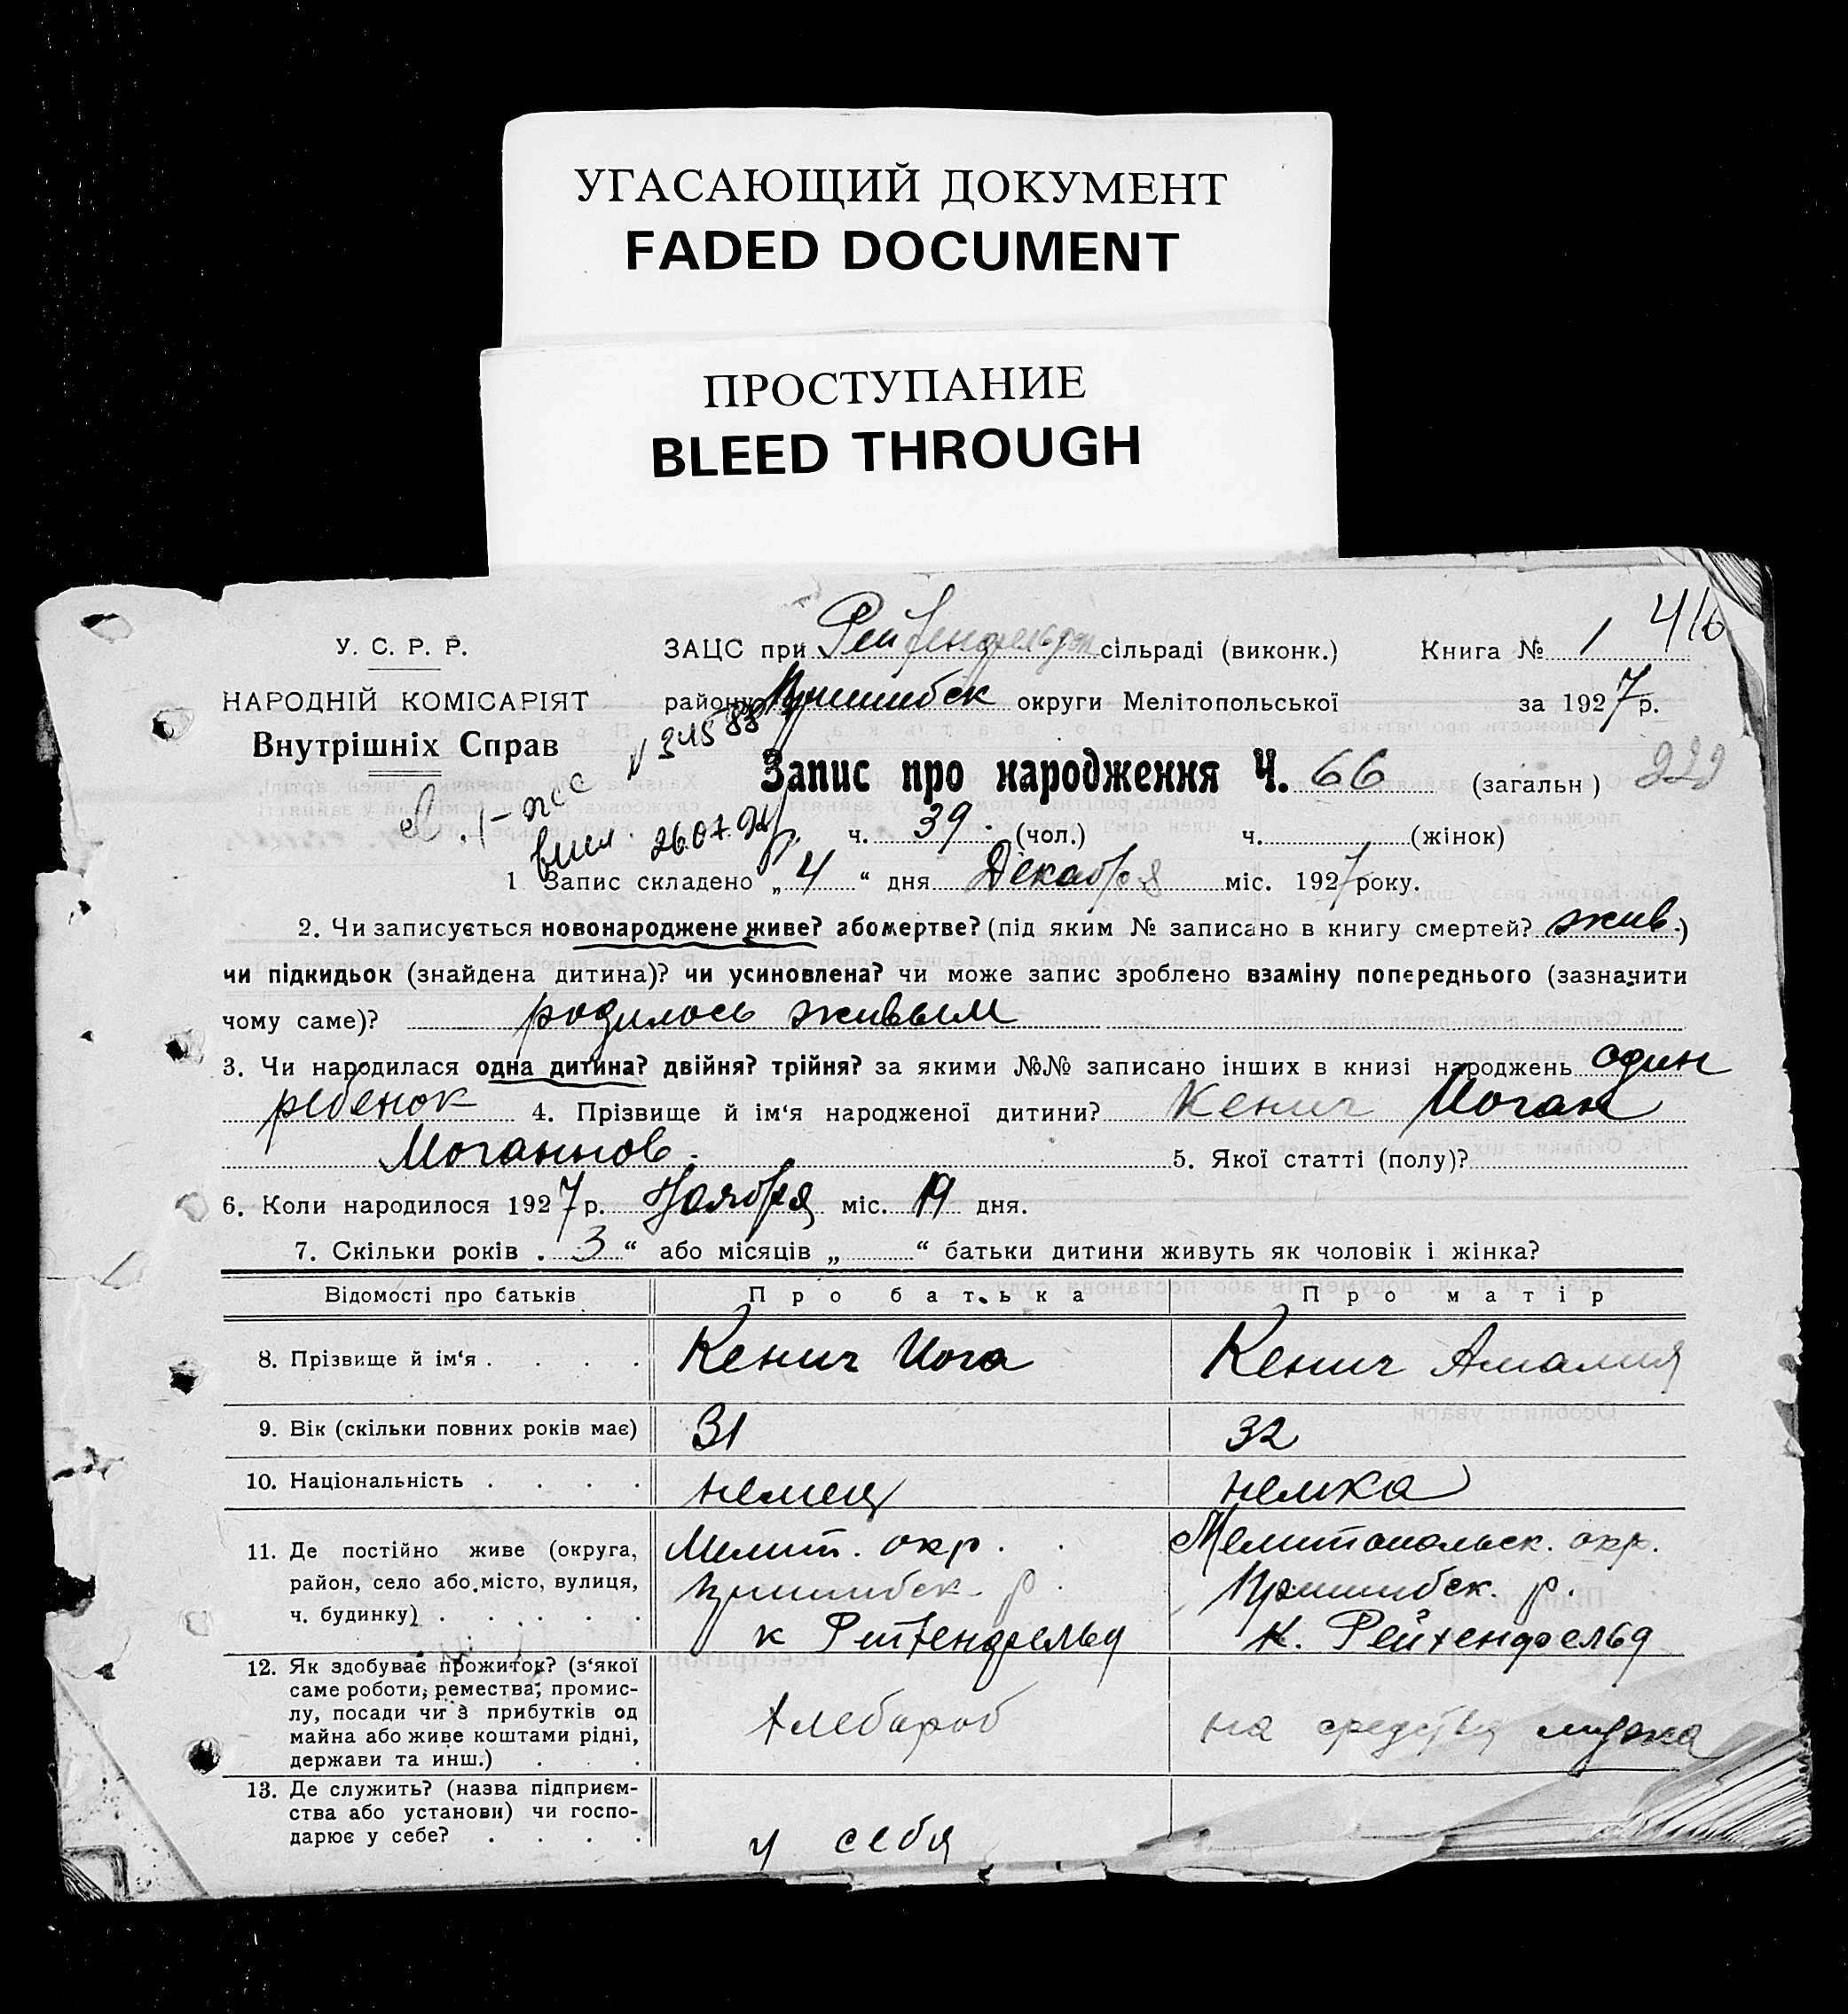 УГАСАЮЩИЙ ДОКУМЕНТ
FADED DOCUMENT
ПРОСТУПАНИЕ
BLEED THROUGH
416
У. С. Р. Р.
ЗАЦС при Рейхендрельдск сільраді (виконк.) Книга № 1
НАРОДНІЙ КОМІСАРІЯТ
району Пришибск округи Мелітопольської за 1927 р.
Внутрішніх Справ
Запис про народження Ч. 66 (загальн) 222
ч. 39. (чол.) ч. (жінок)
26.07.94р.
1 Запис складено „ 4 “ дня Декабря міс. 1927 року.
2. Чи записується новонароджене живе? або мертве? (під яким № записано в книгу смертей? жив.)
чи підкидьок (знайдена дитина)? чи усиновлена? чи може запис зроблено взаміну попереднього (зазначити
чому саме)? родилось живым
3. Чи народилася одна дитина? двійня? трійня? за якими №№ записано інших в книзі народжень один
ребенок 4. Прізвище й ім‘я народженої дитини? Кенич Иоган
Иоганнов. 5. Якої статті (полу)?
6. Коли народилося 1927 р. Ноября міс. 19 дня.
7. Скільки років „ 3 “ або місяців „ “ батьки дитини живуть як чоловік і жінка?
Відомості про батьків Про батька Про матір
8. Прізвище й ім‘я . . . . Кенич Иога Кенич Амалия
9. Вік (скільки повних років має) 31 32
10. Національність . . . . немец немка
11. Де постійно живе (округа, Мелит. окр. Мелитопольск. окр.
район, село або місто, вулиця, Пришибск. р. Пришибск. р.
ч. будинку) . . . . . к Рейхендрельд к. Рейхендрельд
12. Як здобуває прожиток? (з‘якої
саме роботи, ремества, промис-
лу, посади чи з прибутків од хлебороб на средства мужа
майна або живе коштами рідні,
держави та инш.) . . .
13. Де служить? (назва підприєм-
ства або установи) чи госпо-
дарює у себе? . . . . у себя